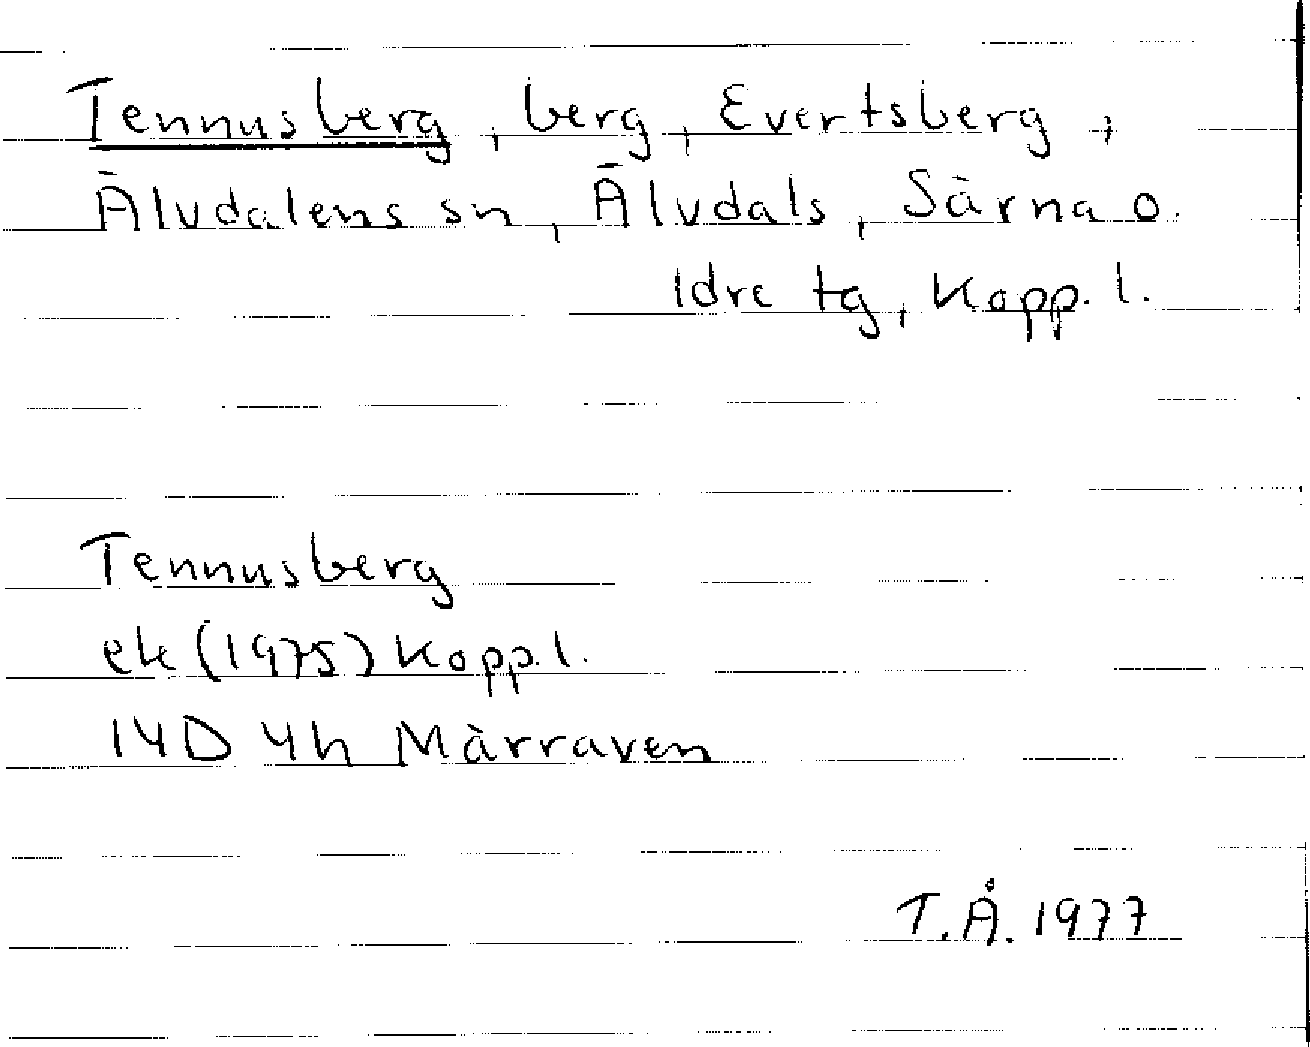 Tennusberg, berg, Evertsberg,
Älvdalens sn, Älvdals, Särna o.
Idre tg, Kopp. l.
Tennusberg
ek (1975) Kopp. l.
14D 4h Märraven
T.Å. 1977